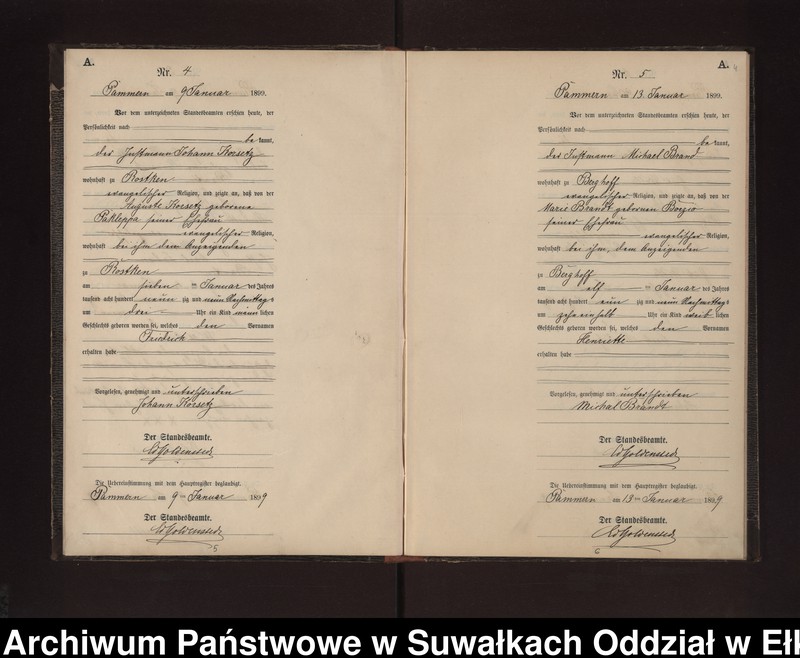 A.
Nr. 4
Pammern am 9 Januar 1899.
Vor dem unterzeichneten Standesbeamten erschien heute, der
Persönlichkeit nach
be kannt,
der Instmann Johann Korsetz
wohnhaft zu Rostken
evangelischer Religion, und zeigte an, daß von der
Auguste Korsetz geborene
Pakleppa seiner Ehefrau
evangelischer Religion,
wohnhaft bei ihm dem Anzeigenden
zu Rostken
am sieben ten Januar des Jahres
tausend acht hundert neun zig und neun Nachmittags
um drei Uhr ein Kind männlichen
Geschlechts geboren worden sei, welches den Vornamen
Friedrich
erhalten habe
Vorgelesen, genehmigt und unterschrieben
Johann Korsetz
Der Standesbeamte.
Die Uebereinstimmung mit dem Hauptregister beglaubigt.
Pammern am 9 ten Januar 1899
Der Standesbeamte.
5
A.
Nr. 5
Pammern am 13 Januar 1899.
Vor dem unterzeichneten Standesbeamten erschien heute, der
Persönlichkeit nach
be kannt,
der Instmann Michael Brand
wohnhaft zu Berghoff
evangelischer Religion, und zeigte an, daß von der
Marie Brandt gebornen
seiner Ehefrau
evangelischer Religion,
wohnhaft bei ihm, dem Anzeigenden
zu Berghoff
am elf ten Januar des Jahres
tausend acht hundert neun zig und neun Nachmittags
um zehneinhalb Uhr ein Kind weiblichen
Geschlechts geboren worden sei, welches den Vornamen
Henriette
erhalten habe
Vorgelesen, genehmigt und unterschrieben
Michal Brandt
Der Standesbeamte.
Die Uebereinstimmung mit dem Hauptregister beglaubigt.
Pammern am 13 ten Januar 1899
Der Standesbeamte.
6
Archiwum Państwowe w Suwałkach Oddział w Ełk